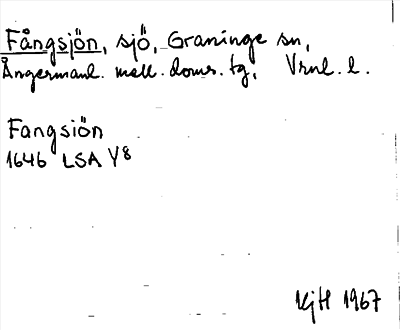 Fångsjön, sjö, Graninge sn,
Ångermanl. mell. doms. tg, Vrnl. l.
Fangsiön
1646 LSA Y8
KjH 1967